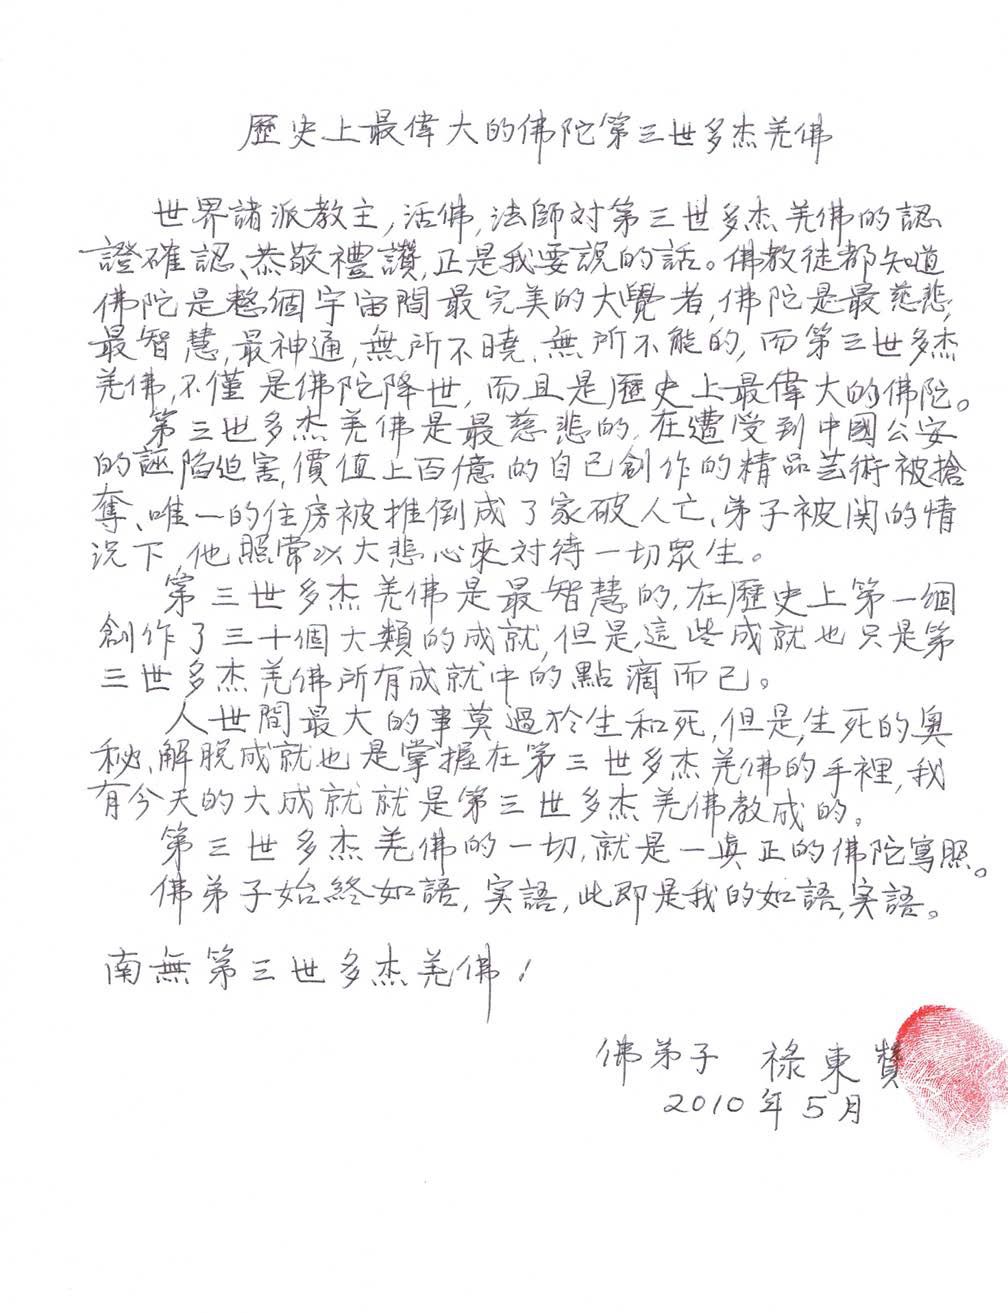 歷史上最偉大的佛陀第三世多杰羌佛
世界諸派教主,活佛,法師对第三世多杰羌佛的認
證確認、恭敬禮讚,正是我要說的話。佛教徒都知道
佛陀是整個宇宙間最完美的大覺者,佛陀是最慈悲,
最智慧,最神通,無所不曉、無所不能的,而第三世多杰
羌佛,不僅是佛陀降世,而且是歷史上最偉大的佛陀。
第三世多杰羌佛是最慈悲的,在遭受到中國公安
的誣陷迫害,價值上百億的自己創作的精品芸術被搶
奪、唯一的住房被推倒成了家破人亡、弟子被関的情
況下,他照常以大悲心來対待一切眾生。
第三世多杰羌佛是最智慧的,在歷史上第一個
創作了三十個大類的成就,但是,這些成就也只是第
三世多杰羌佛所有成就中的點滴而已。
人世間最大的事莫過於生和死,但是,生死的奧
秘、解脫成就也是掌握在第三世多杰羌佛的手裡,我
有今天的大成就就是第三世多杰羌佛教成的。
第三世多杰羌佛的一切,就是一真正的佛陀寫照。
佛弟子始終如語,実語,此即是我的如語,実語。
南無第三世多杰羌佛!
佛弟子 祿東贊
2010年5月